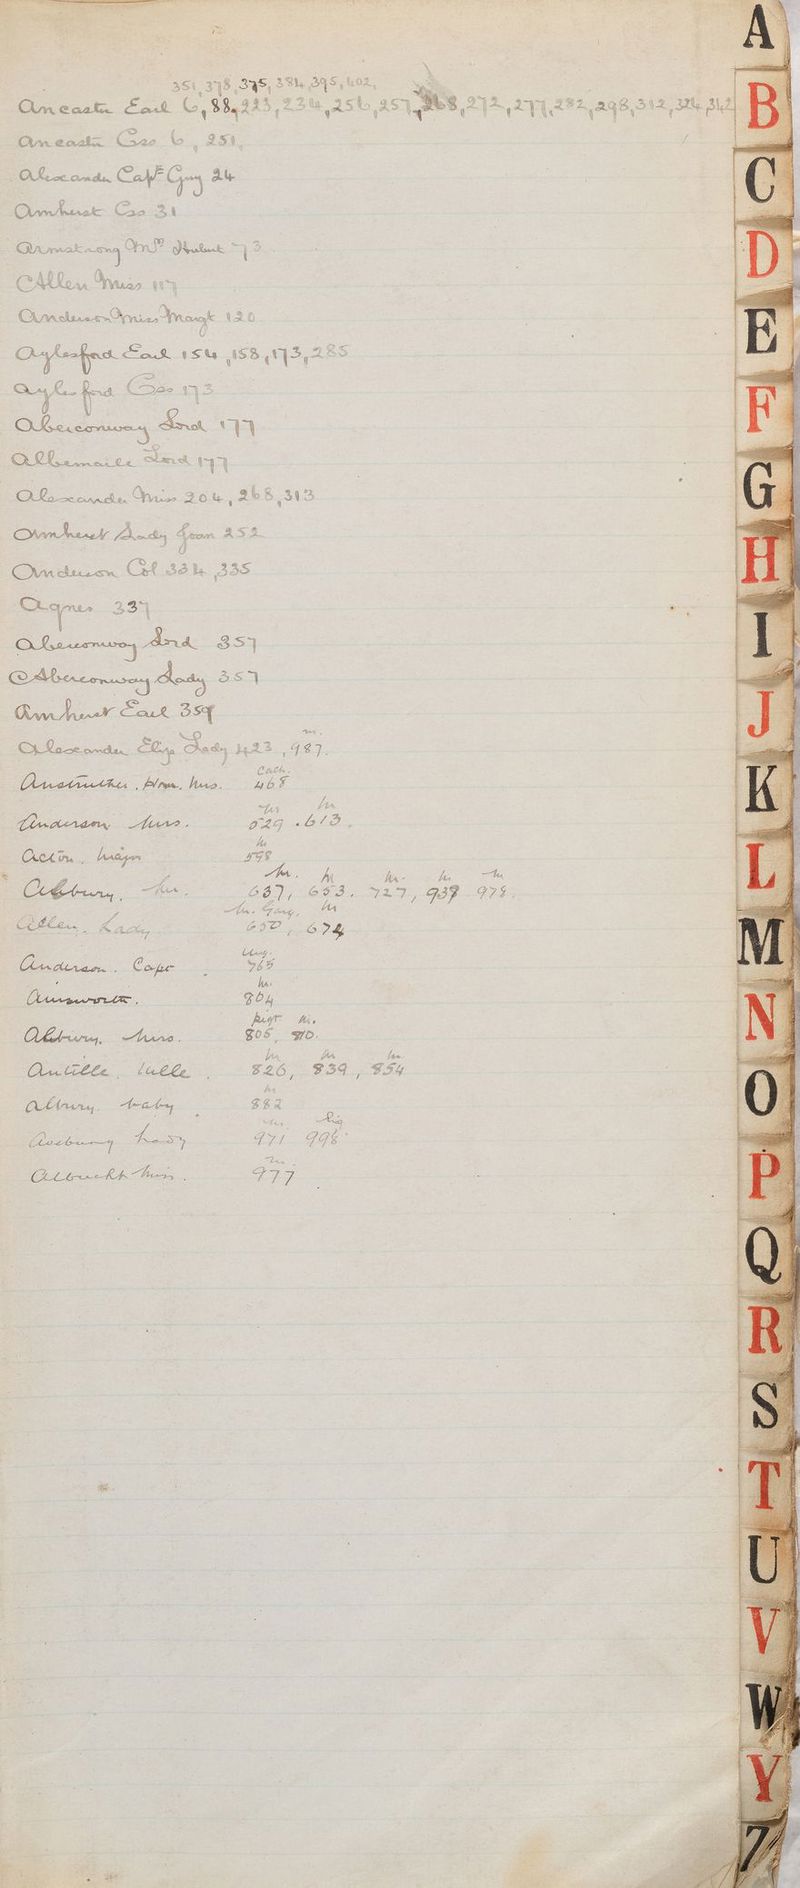 351, 378, 375, 384, 395, 402,
Ancaster Earl 6, 88, 223, 234, 256, 257, 268, 272, 277, 282, 298, 312, 324, 342
Ancaster Css 6, 251,
Alexander Capt Guy 24
Amherst Css 31
Armstrong Mrs Hubert 73
Allen Miss 117
Anderson Miss Margt 120
Aylesford Earl 154, 158, 173, 285
Aylesford Css 173
Aberconway Lord 177
Albemarle Lord 177
Alexander Miss 204, 268, 313
Amherst Lady Joan 252
Anderson Col 334, 335
Agnes 337
Aberconway Lord 357
Aberconway Lady 357
Amherst Earl 359
m.
Alexander Eliz Lady 423, 987.
Anstruther. Hon. Mrs. 468
m m
Anderson Mrs. 529. 613.
m
Acton. Major 598
m. m m. m m
Albury. Mr. 637, 653. 727, 939 978.
m
Allen. Lady 650, 674
Anderson. Capt. 765
m.
Ainsworth. 804
m.
Albury. Mrs. 805, 810.
m m m
Antille. Mlle. 826, 839, 854
m
Albury baby. 882
Avebury Lady 971 998
m.
Albrecht Miss. 977
A
B
C
D
E
F
G
H
I
J
K
L
M
N
O
P
Q
R
S
T
U
V
W
Y
Z